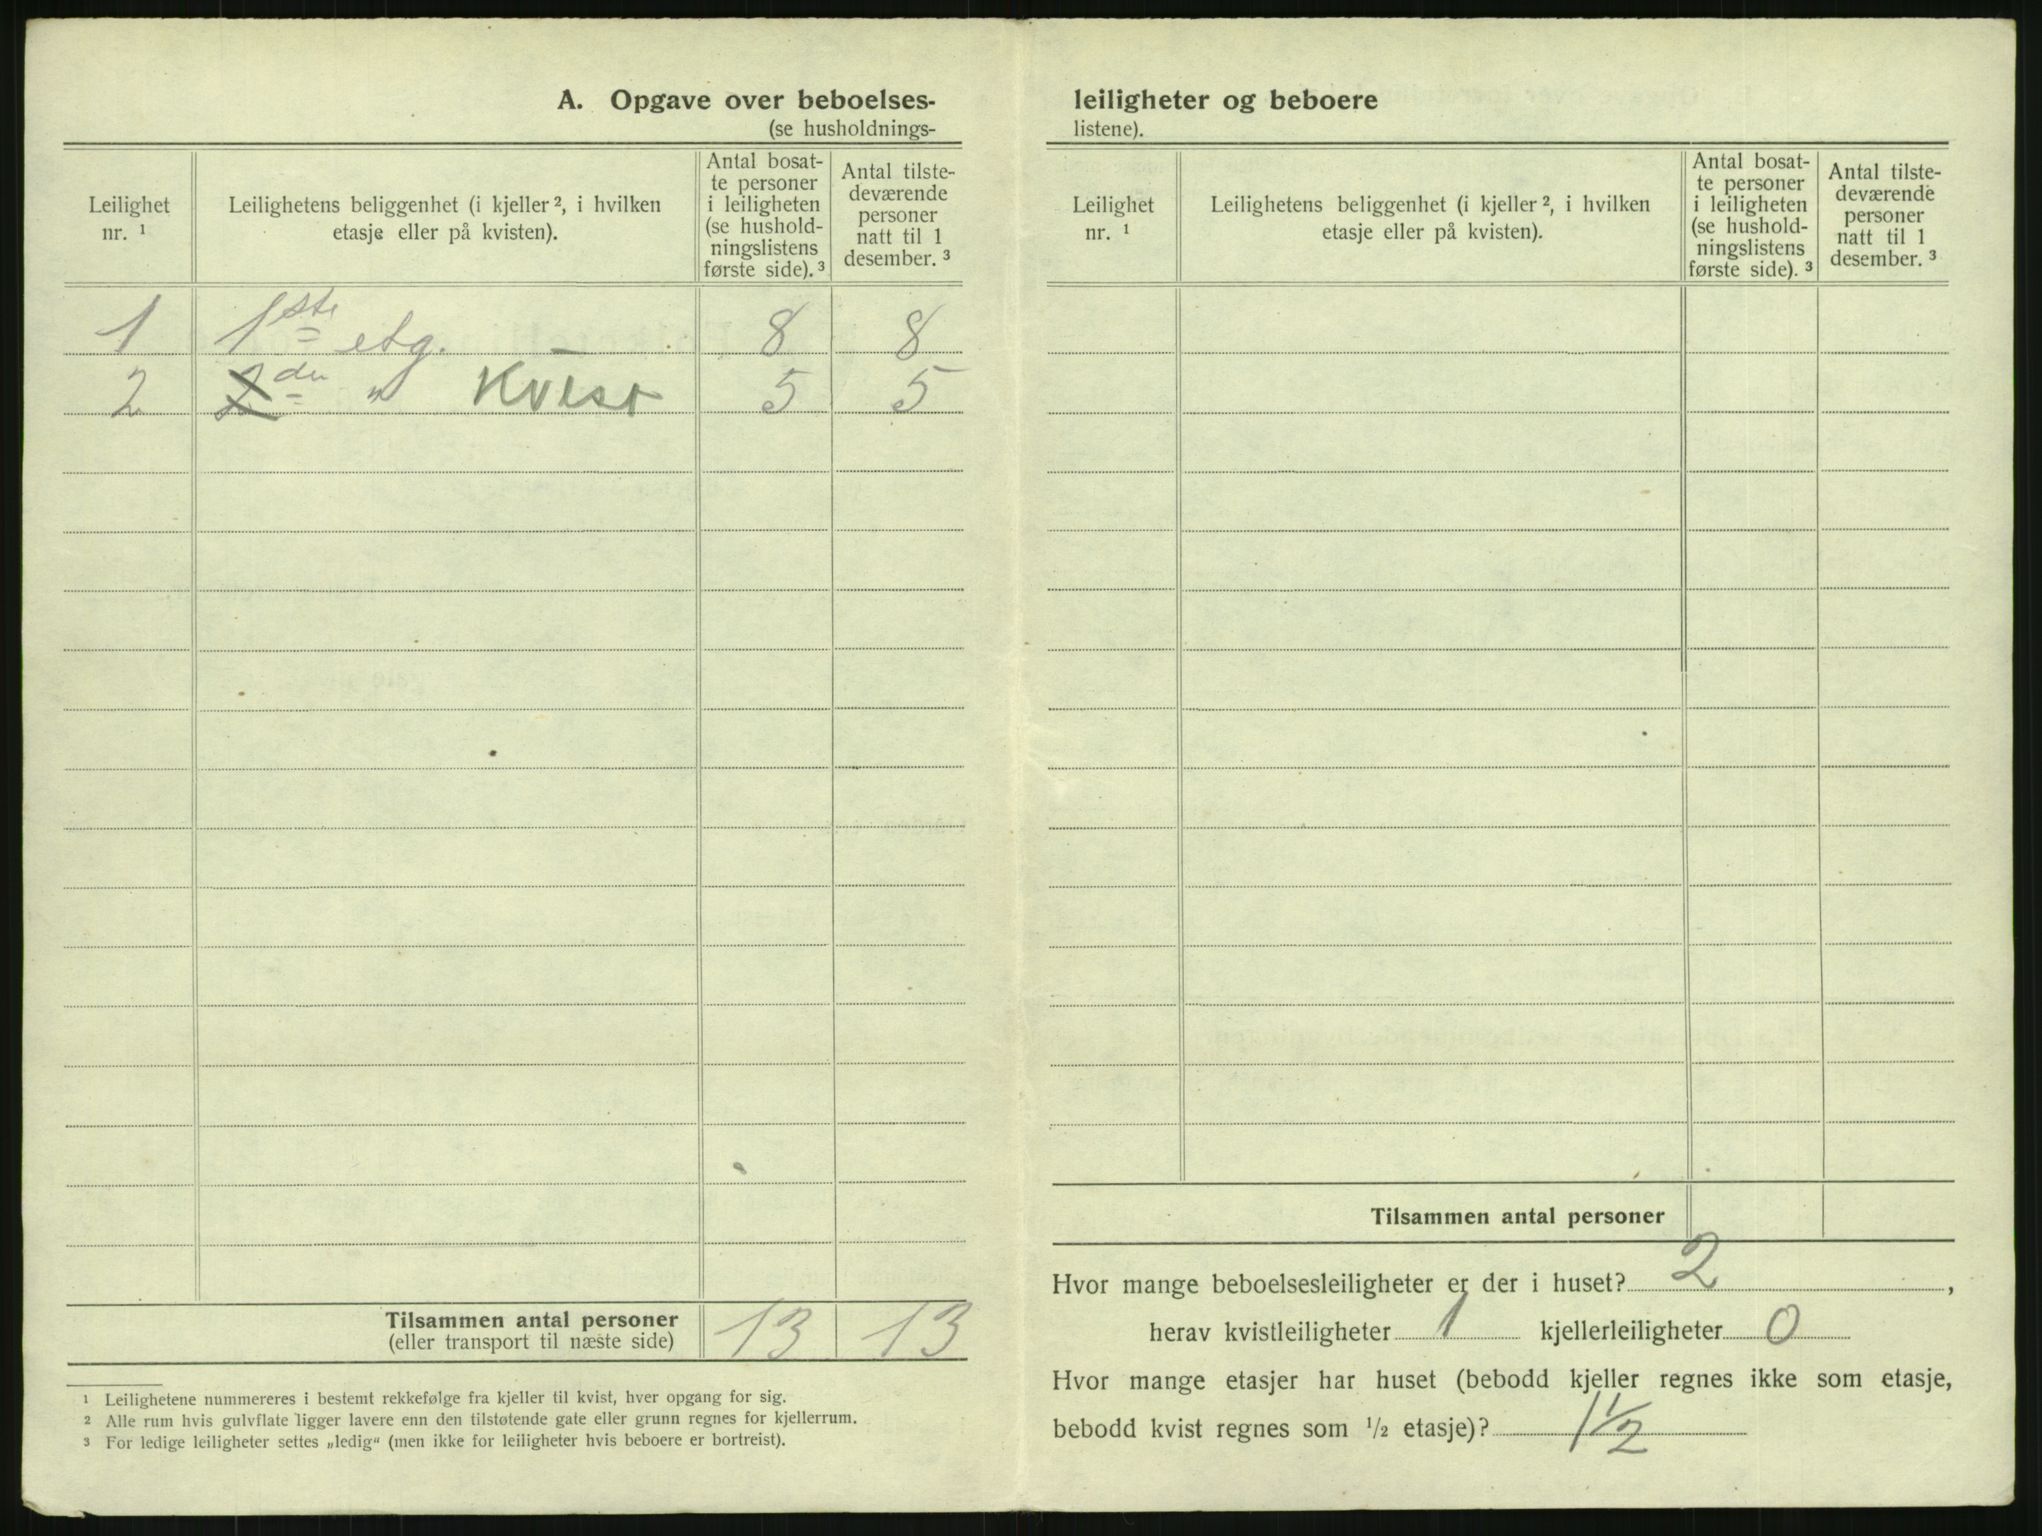 A. Opgave over beboelses-
(se husholdnings-
Leilighet nr. ¹
Leilighetens beliggenhet (i kjeller ², i hvilken etasje eller på kvisten).
Antal bosat-
te personer
i leiligheten
(se hushold-
ningslistens
første side). ³
Antal tilste-
deværende
personer
natt til 1
desember. ³
1 1ste etg. 8 8
2 2den " Kvist 5 5
Tilsammen antal personer 13 13
(eller transport til næste side)
¹ Leilighetene nummereres i bestemt rekkefølge fra kjeller til kvist, hver opgang for sig.
² Alle rum hvis gulvflate ligger lavere enn den tilstøtende gate eller grunn regnes for kjellerrum.
³ For ledige leiligheter settes „ledig" (men ikke for leiligheter hvis beboere er bortreist).
leiligheter og beboere
listene).
Leilighet nr. ¹
Leilighetens beliggenhet (i kjeller ², i hvilken etasje eller på kvisten).
Antal bosat-
te personer
i leiligheten
(se hushold-
ningslistens
første side). ³
Antal tilste-
deværende
personer
natt til 1
desember. ³
Tilsammen antal personer
Hvor mange beboelsesleiligheter er der i huset? 2,
herav kvistleiligheter 1 kjellerleiligheter 0
Hvor mange etasjer har huset (bebodd kjeller regnes ikke som etasje,
bebodd kvist regnes som ½ etasje)? 1½